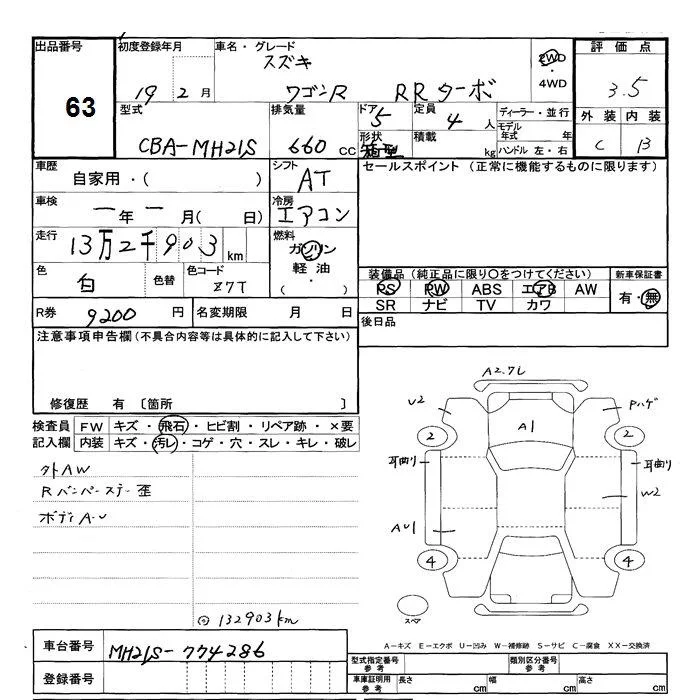 出品番号 初度登録年月 車名・グレード 評価点
スズキ 2WD
63 19 2月 ワゴンR RRターボ ・4WD 3.5
型式 排気量 ドア 定員 ディーラー・並行 外装 内装
CBA-MH21S 660cc 5 4人 モデル年式 年 C B
形状 積載 kg ハンドル 左・右
箱型
車歴 シフト セールスポイント (正常に機能するものに限ります)
自家用・( ) AT
車検 冷房
一年 一月( 日) エアコン
走行 燃料
13万2千903km ガソリン
色 色替 色コード 軽油
白 Z7T ・( )
装備品(純正品に限り○をつけてください) 新車保証書
PS PW ABS エアB AW 有・無
SR ナビ TV カワ
R券 9200円 名変期限 月 日 後日品
注意事項申告欄(不具合内容等は具体的に記入して下さい)
修復歴 有 〔箇所 〕
検査員 FW キズ・飛石・ヒビ割・リペア跡・×要
記入欄 内装 キズ・汚レ・コゲ・穴・スレ・キレ・破レ
外AW
Rバンパーステー歪
ボディA-U
132903km
A2.7L
U2 A1 Pハゲ
2 2
耳曲り 耳曲り
W2
AU1
4 4
スペア
A−キズ E−エクボ U−凹み W−補修跡 S−サビ C−腐食 XX−交換済
車台番号 MH21S-774286
登録番号
型式指定番号 参考 類別区分番号 参考
車庫証明用 参考 長さ cm 幅 cm 高さ cm